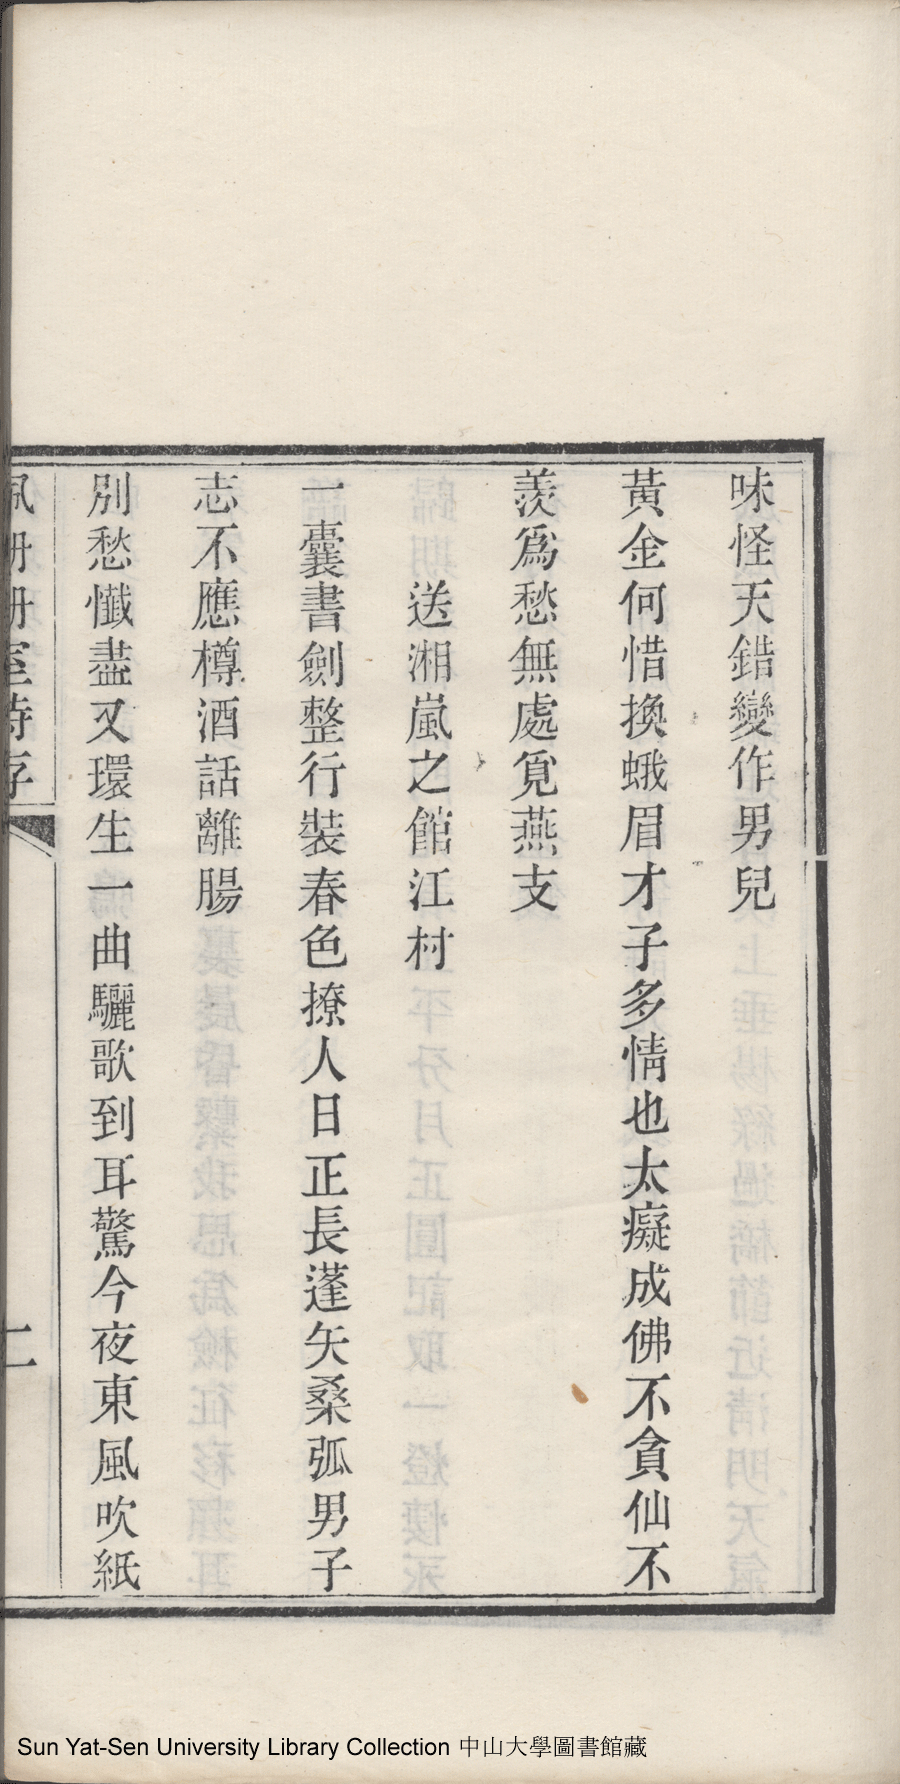 味怪天錯變作男兒
黃金何惜換蛾眉才子多情也太癡成佛不貪仙不
羨爲愁無處覓燕支
送湘嵐之館江村
一囊書劍整行裝春色撩人日正長蓬矢桑弧男子
志不應樽酒話離腸
別愁懺盡又環生一曲驪歌到耳驚今夜東風吹紙
室詩存
Sun Yat-Sen University Library Collection 中山大學圖書館藏